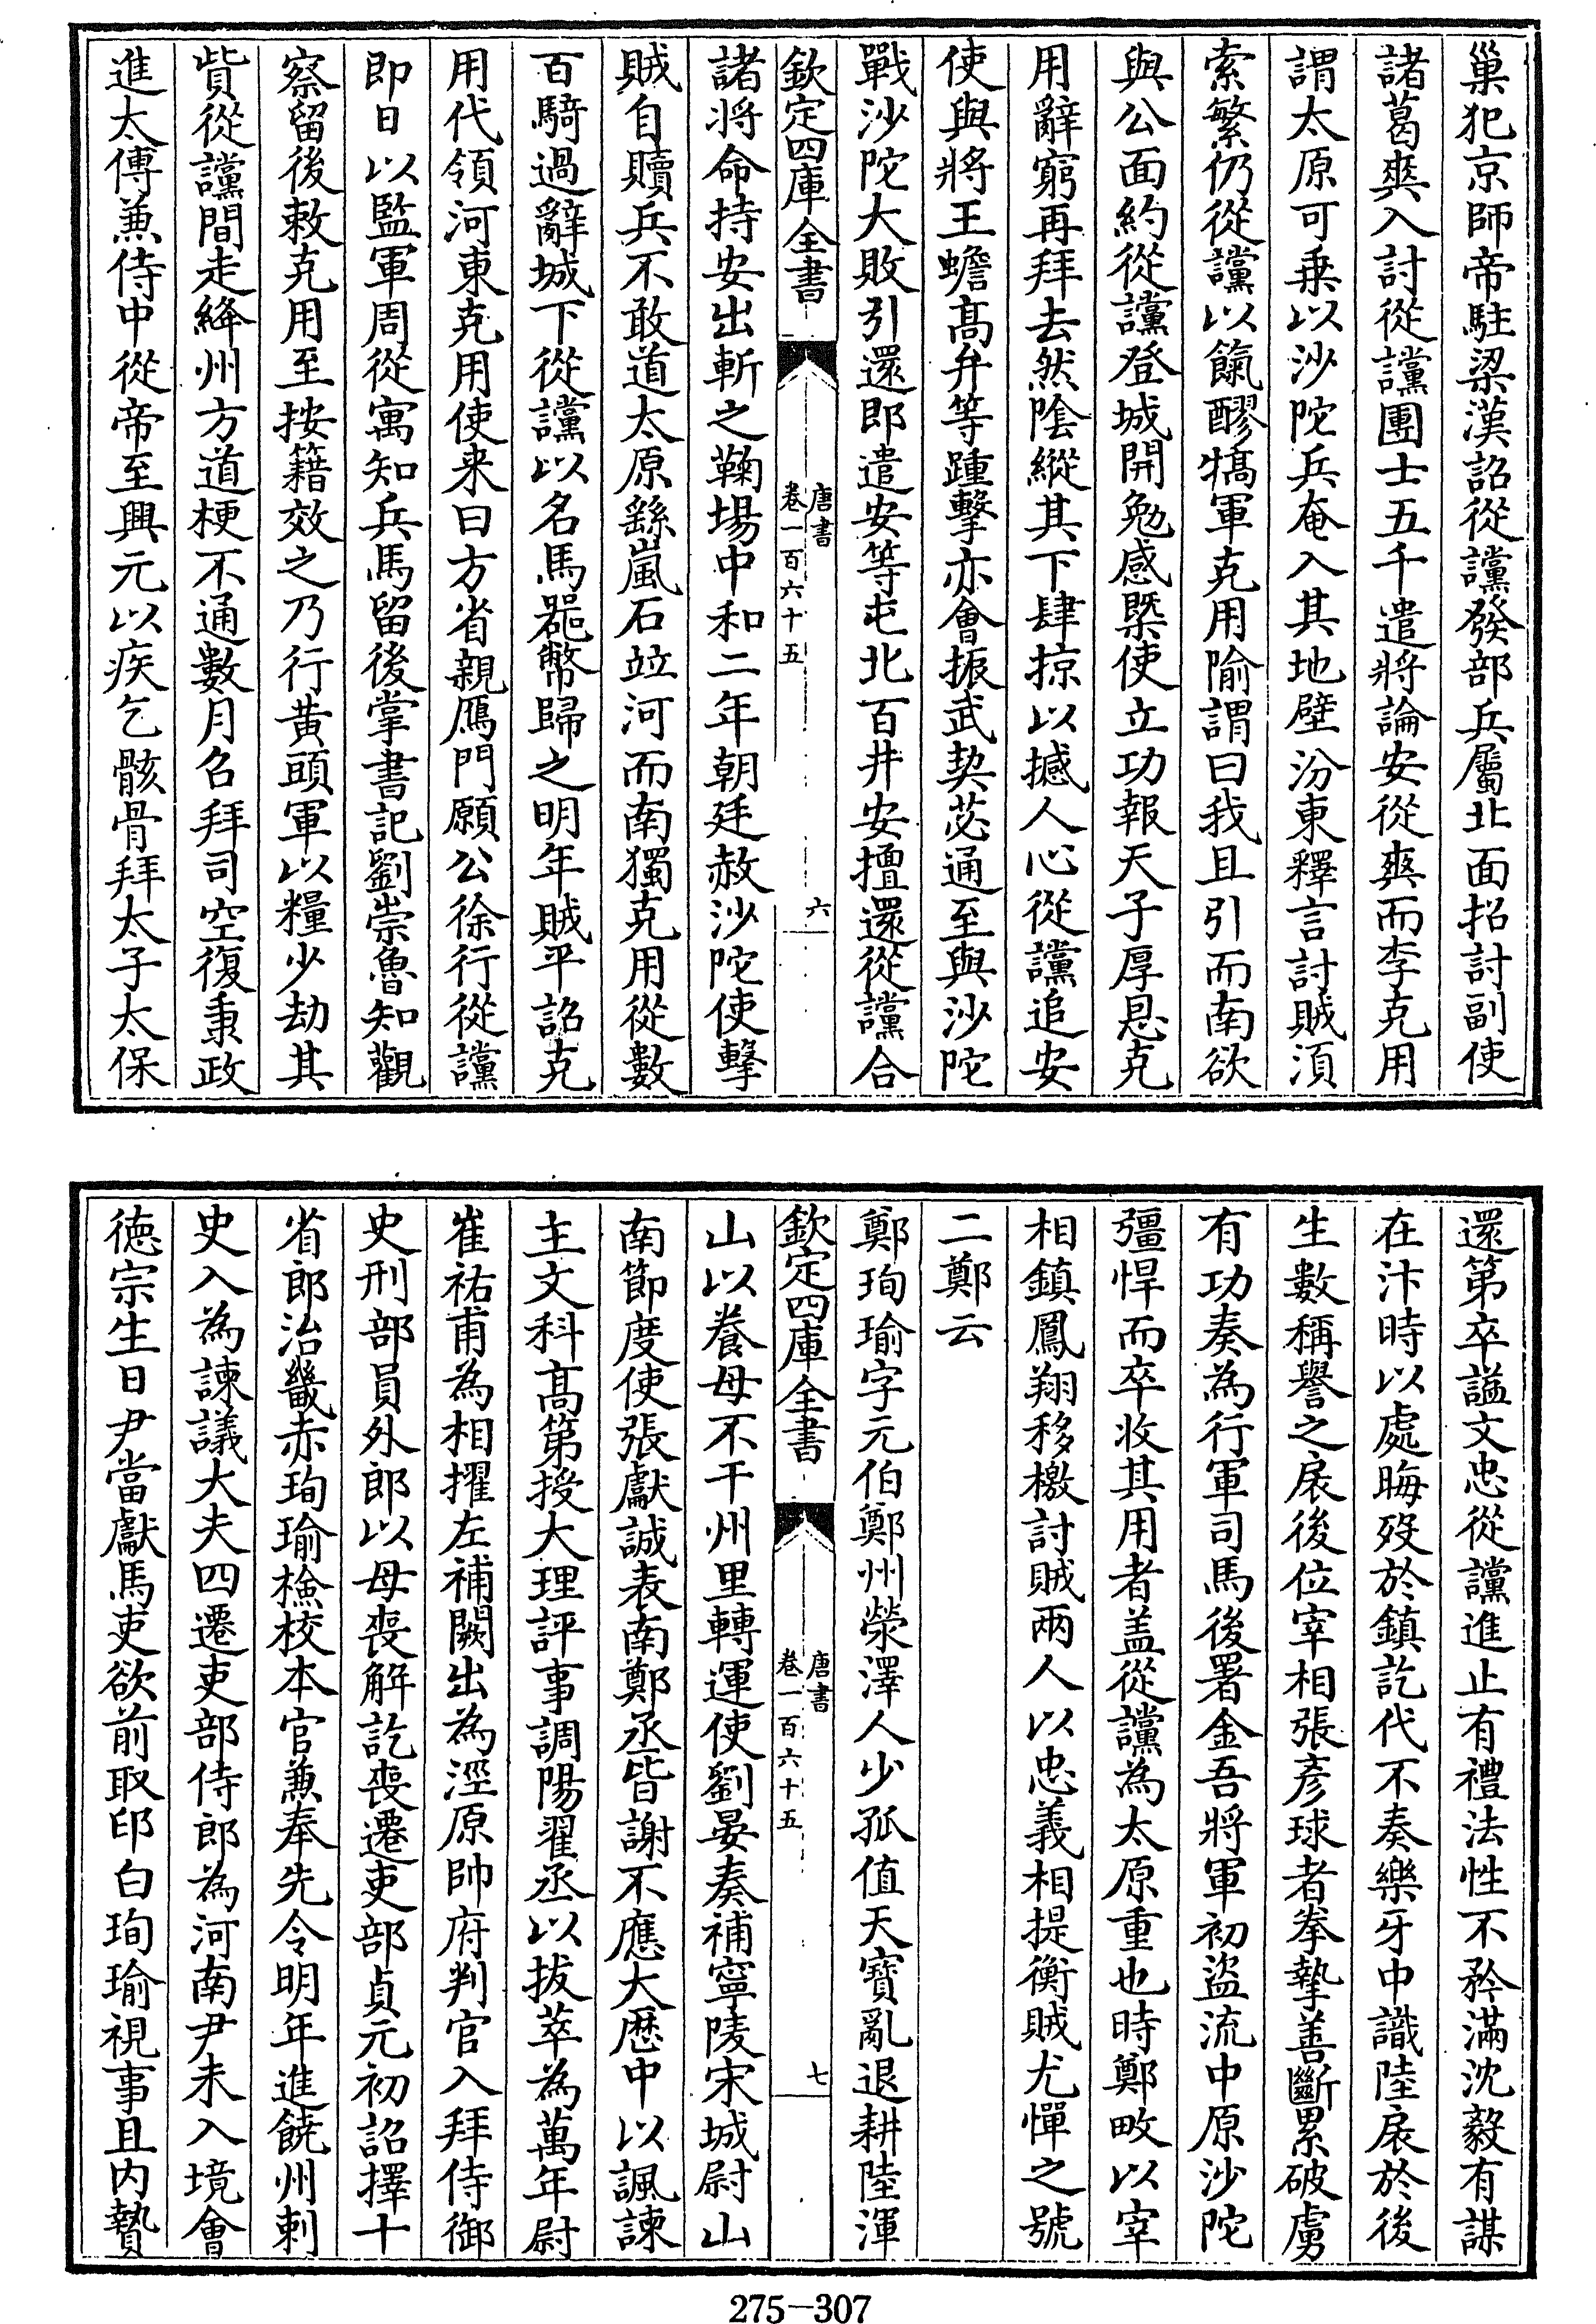 巢犯京師帝駐梁漢詔從讜發部兵屬北面招討副使
諸葛爽入討從讜團士五千遣將論安從爽而李克用
謂太原可乗以沙陀兵奄入其地壁汾東釋言討賊須
索繁仍從讜以餼醪犒軍克用隃謂曰我且引而南欲
與公面約從讜登城開勉感槩使立功報天子厚恩克
用辭窮再拜去然陰縱其下肆掠以撼人心從讜追安
使與將王蟾髙弁等踵擊亦會振武契苾通至與沙陀
戰沙陀大敗引還即遣安等屯北百井安擅還從讜合
欽定四庫全書
唐書
卷一百六十五
六
諸將命持安出斬之鞠場中和二年朝廷赦沙陀使擊
賊自贖兵不敢道太原繇嵐石竝河而南獨克用從數
百騎過辭城下從讜以名馬器幣歸之明年賊平詔克
用代領河東克用使来曰方省親鴈門願公徐行從讜
即日以監軍周從寓知兵馬留後掌書記劉崇魯知觀
察留後敕克用至按籍效之乃行黄頭軍以糧少劫其
貲從讜間走絳州方道梗不通數月召拜司空復秉政
進太傅兼侍中從帝至興元以疾乞骸骨拜太子太保
還第卒謚文忠從讜進止有禮法性不矜滿沈毅有謀
在汴時以處晦歿於鎮訖代不奏樂牙中識陸扆於後
生數稱譽之扆後位宰相張彦球者拳摯善斷累破虜
有功奏為行軍司馬後署金吾將軍初盜流中原沙陀
彊悍而卒收其用者盖從讜為太原重也時鄭畋以宰
相鎮鳳翔移檄討賊兩人以忠義相提衡賊尤憚之號
二鄭云
鄭珣瑜字元伯鄭州滎澤人少孤值天寶亂退耕陸渾
欽定四庫全書
唐書
卷一百六十五
七
山以養母不干州里轉運使劉晏奏補寧陵宋城尉山
南節度使張獻誠表南鄭丞皆謝不應大厯中以諷諫
主文科髙第授大理評事調陽翟丞以拔萃為萬年尉
崔祐甫為相擢左補闕出為涇原帥府判官入拜侍御
史刑部員外郎以母喪解訖喪遷吏部貞元初詔擇十
省郎治畿赤珣瑜檢校本官兼奉先令明年進饒州刺
史入為諫議大夫四遷吏部侍郎為河南尹未入境會
徳宗生日尹當獻馬吏欲前取印白珣瑜視事且内贄
275—307